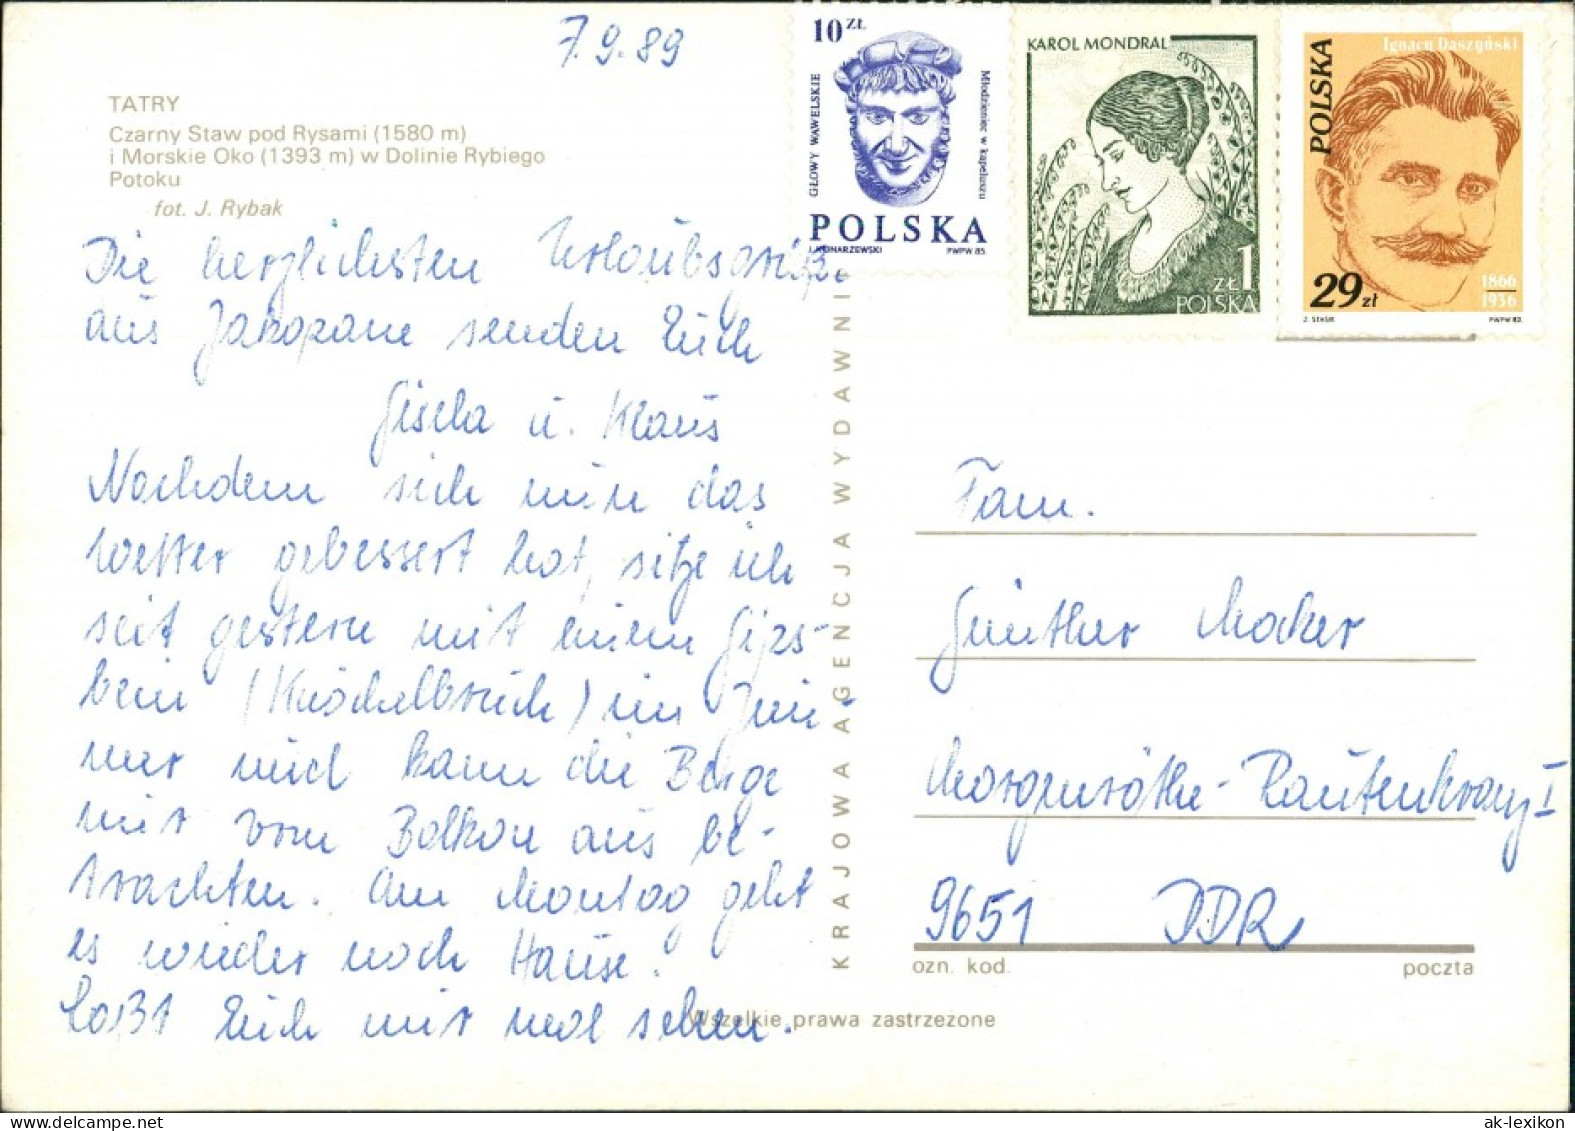 7.9.89
TATRY
Czarny Staw pod Rysami (1580 m)
i Morskie Oko (1393 m) w Dolinie Rybiego
Potoku
fot. J. Rybak
Die herzlichsten Urlaubsgrüße
aus Zakopane senden Euch
Gisela u. Klaus
Nachdem sich nun das
Wetter gebessert hat, sitze ich
seit gestern mit einem Gips-
bein (Knöchelbruch) im Zim-
mer und kann die Berge
nur vom Balkon aus be-
trachten. Am Montag geht
es wieder nach Hause!
Laßt Euch mir mal sehen.
KRAJOWA AGENCJA WYDAWNI
Wszelkie prawa zastrzeżone
10 ZŁ
GŁOWY WAWELSKIE
Młodzieniec w kapeluszu
POLSKA
J. KONARZEWSKI PWPW 85.
KAROL MONDRAL
ZŁ 1
POLSKA
Ignacy Daszyński
POLSKA
29 zł
1866
1936
Z. STASIK PWPW 82.
Fam.
Günther Mocker
Morgenröthe-Rautenkranz I
9651 DDR
ozn. kod. poczta
ak-lexikon